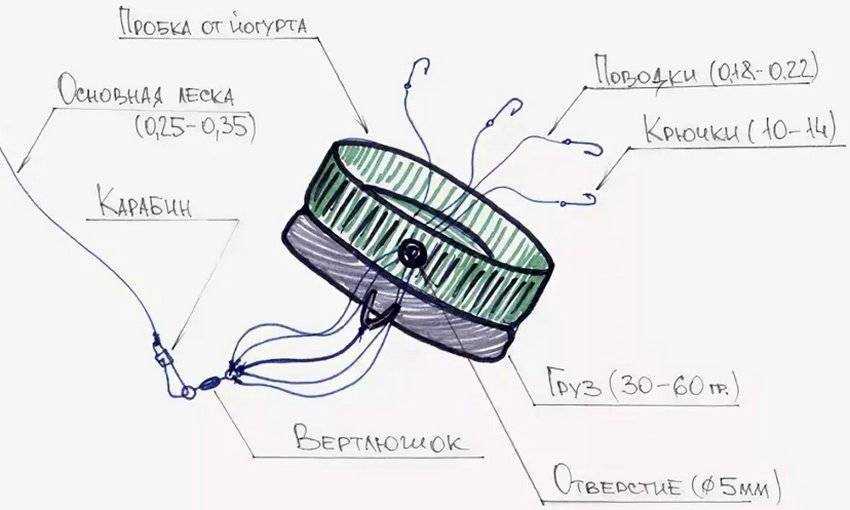 Пробка от йогурта
Поводки (0,18-0,22)
Основная леска
(0,25-0,35)
Крючки (10-14)
Карабин
Груз (30-60 гр.)
Вертлюшок
Отверстие (φ5мм)